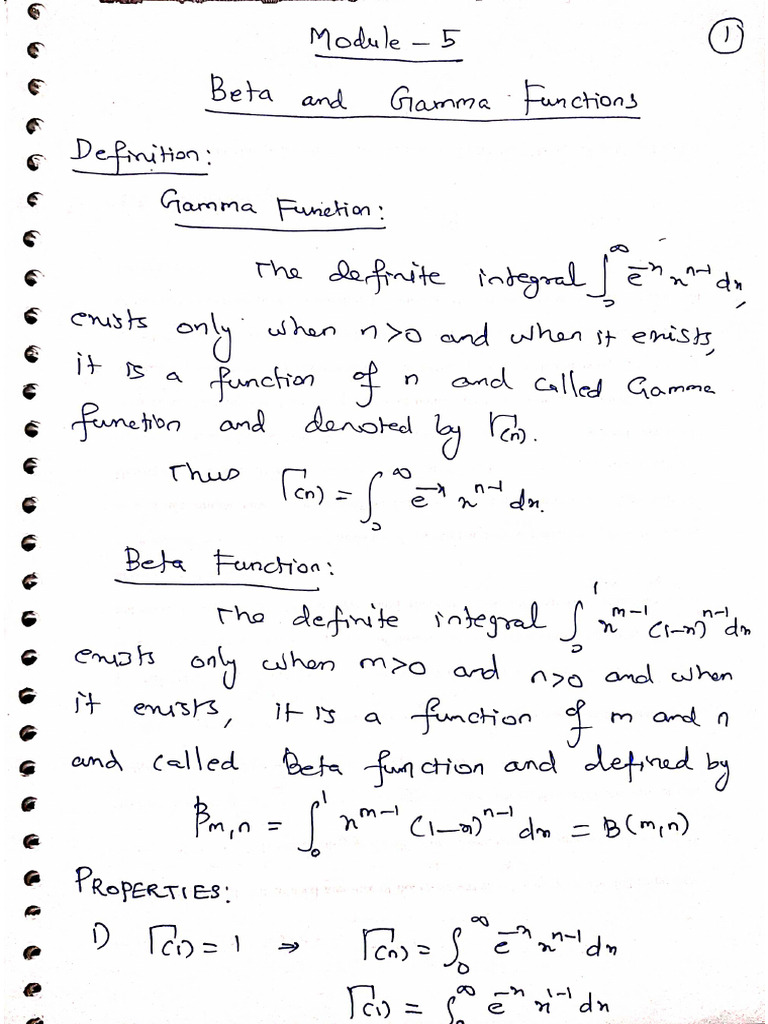 Module - 5
①
Beta and Gamma Functions
Definition:
Gamma Function:
The definite integral ∫₀^∞ e^{-x} x^{n-1} dx,
exists only when n>0 and when it exists,
it is a function of n and called Gamma
function and denoted by Γ(n).
Thus Γ(n) = ∫₀^∞ e^{-x} x^{n-1} dx.
Beta Function:
The definite integral ∫₀^1 x^{m-1} (1-x)^{n-1} dx
exists only when m>0 and n>0 and when
it exists, it is a function of m and n
and called Beta function and defined by
β_{m,n} = ∫₀^1 x^{m-1} (1-x)^{n-1} dx = B(m,n)
PROPERTIES:
1) Γ(1) = 1 ⇒ Γ(n) = ∫₀^∞ e^{-x} x^{n-1} dx
Γ(1) = ∫₀^∞ e^{-x} x^{1-1} dx